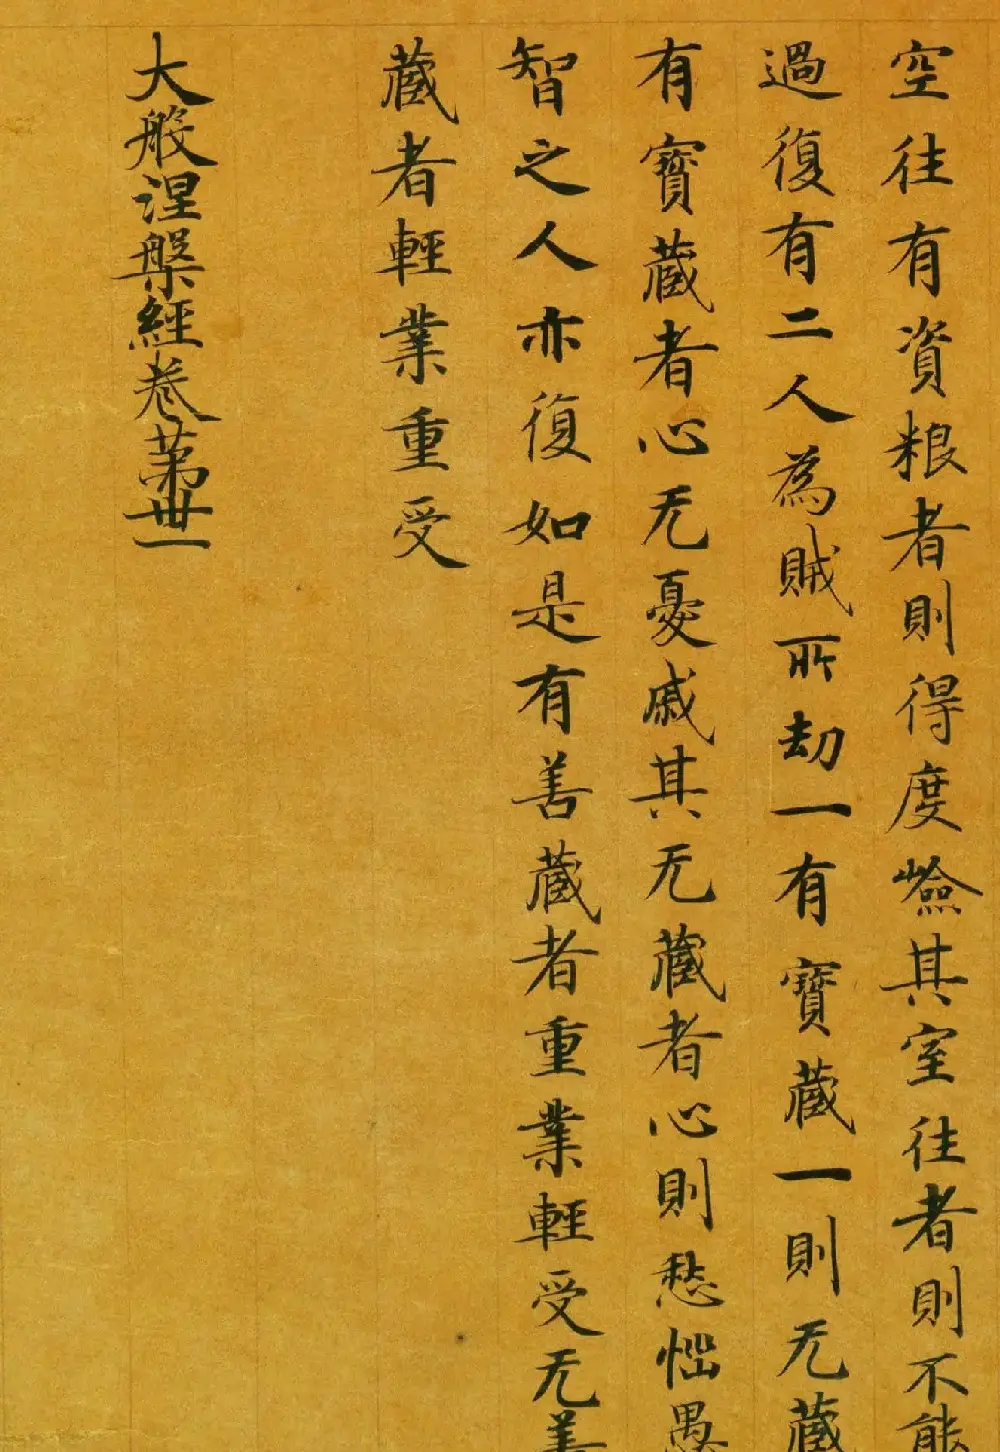 空往有資粮者則得度嶮其空往者則不能
過復有二人為賊所劫一有寶藏一則无藏
有寶藏者心无憂戚其无藏者心則愁惱愚
智之人亦復如是有善藏者重業輕受无善
藏者輕業重受
大般涅槃經卷第卅一